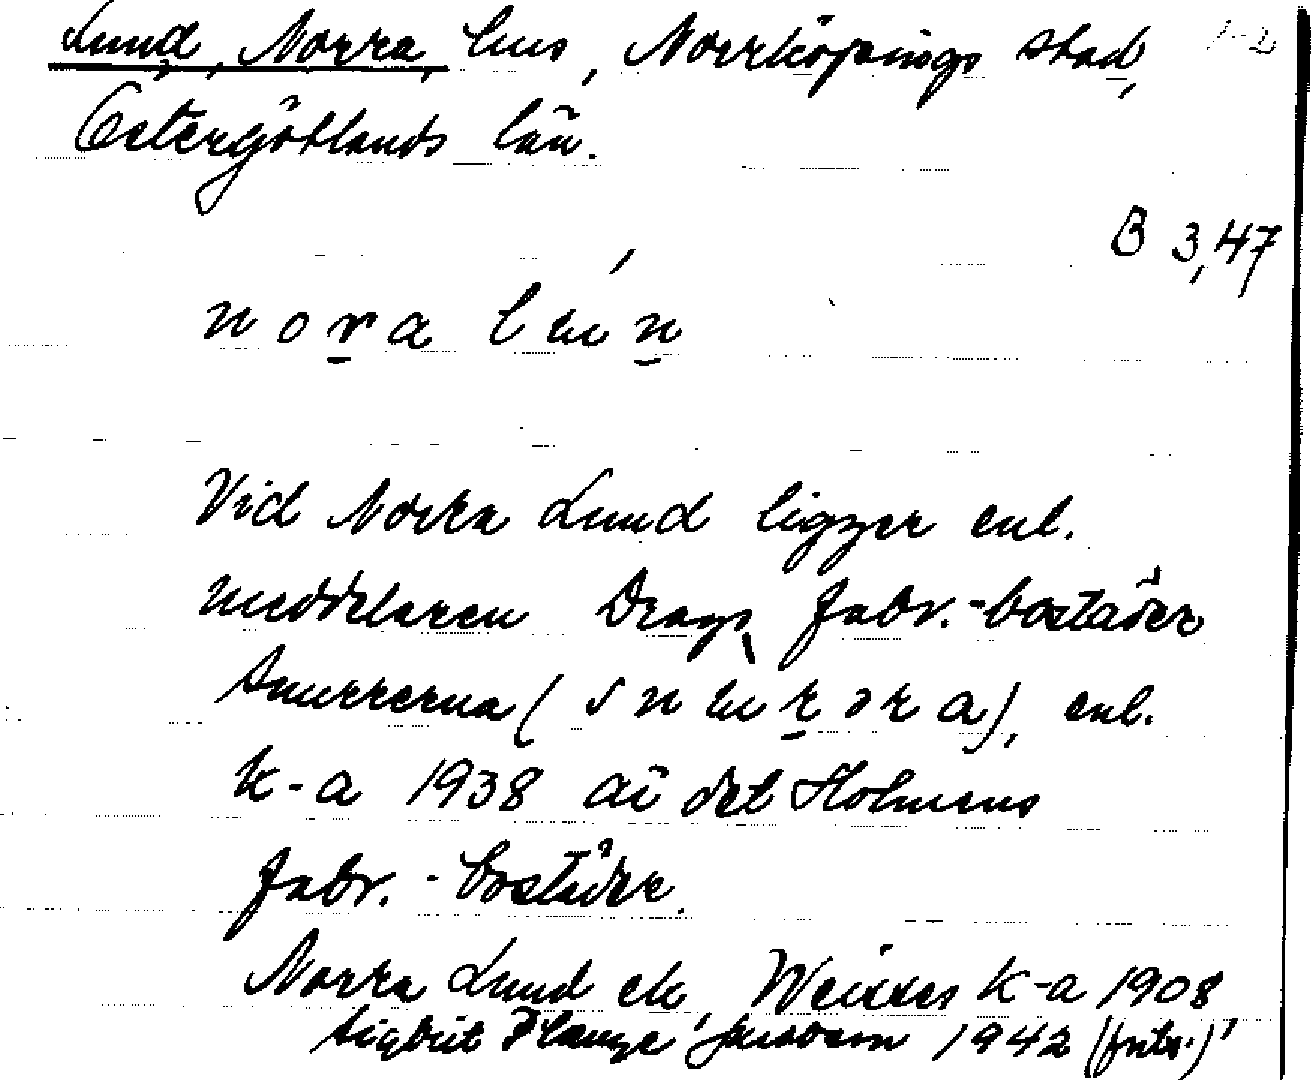 Lund, Norra, hus, Norrköpings stad, 1-2
Östergötlands län.
B 3,47
nora lun
Vid Norra Lund ligger enl.
meddelaren Drags fabr.-bostäder
Snurrerna (snurəra), enl.
k-a 1938 är det Holmens
fabr.-bostäder.
Norra Lund ek, Weixes k-a 1908
Sigbrit Plange Jacobson 1942 (fritr.)